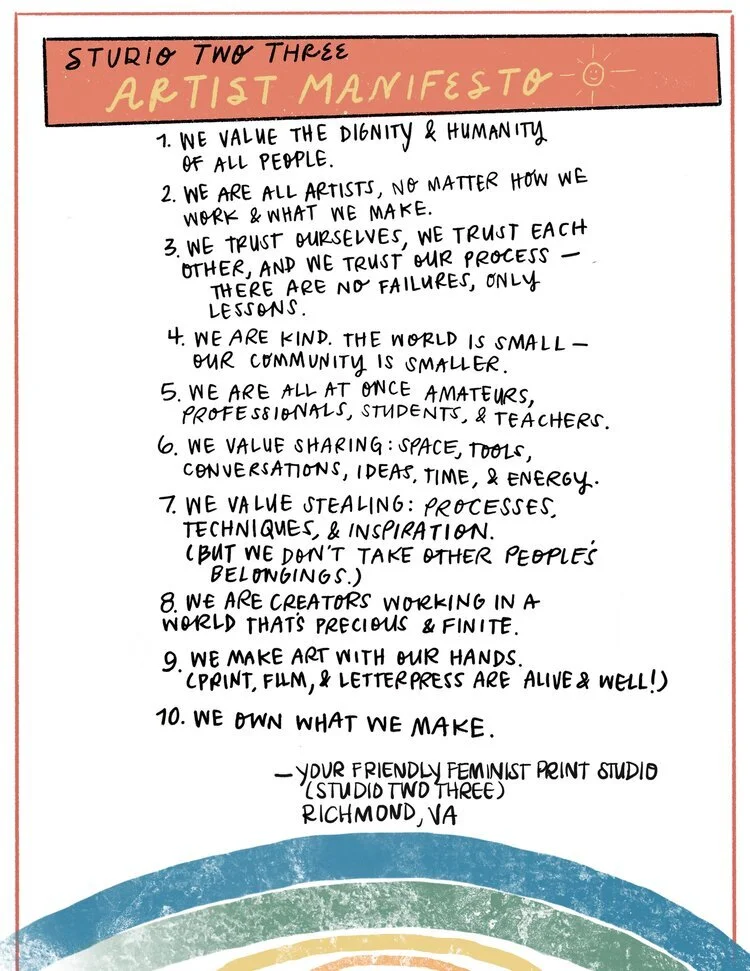 STUDIO TWO THREE
ARTIST MANIFESTO
1. WE VALUE THE DIGNITY & HUMANITY
OF ALL PEOPLE.
2. WE ARE ALL ARTISTS, NO MATTER HOW WE
WORK & WHAT WE MAKE.
3. WE TRUST OURSELVES, WE TRUST EACH
OTHER, AND WE TRUST OUR PROCESS –
THERE ARE NO FAILURES, ONLY
LESSONS.
4. WE ARE KIND. THE WORLD IS SMALL –
OUR COMMUNITY IS SMALLER.
5. WE ARE ALL AT ONCE AMATEURS,
PROFESSIONALS, STUDENTS, & TEACHERS.
6. WE VALUE SHARING: SPACE, TOOLS,
CONVERSATIONS, IDEAS, TIME, & ENERGY.
7. WE VALUE STEALING: PROCESSES,
TECHNIQUES, & INSPIRATION.
(BUT WE DON'T TAKE OTHER PEOPLE'S
BELONGINGS.)
8. WE ARE CREATORS WORKING IN A
WORLD THAT'S PRECIOUS & FINITE.
9. WE MAKE ART WITH OUR HANDS.
(PRINT, FILM, & LETTERPRESS ARE ALIVE & WELL!)
10. WE OWN WHAT WE MAKE.
– YOUR FRIENDLY FEMINIST PRINT STUDIO
(STUDIO TWO THREE)
RICHMOND, VA